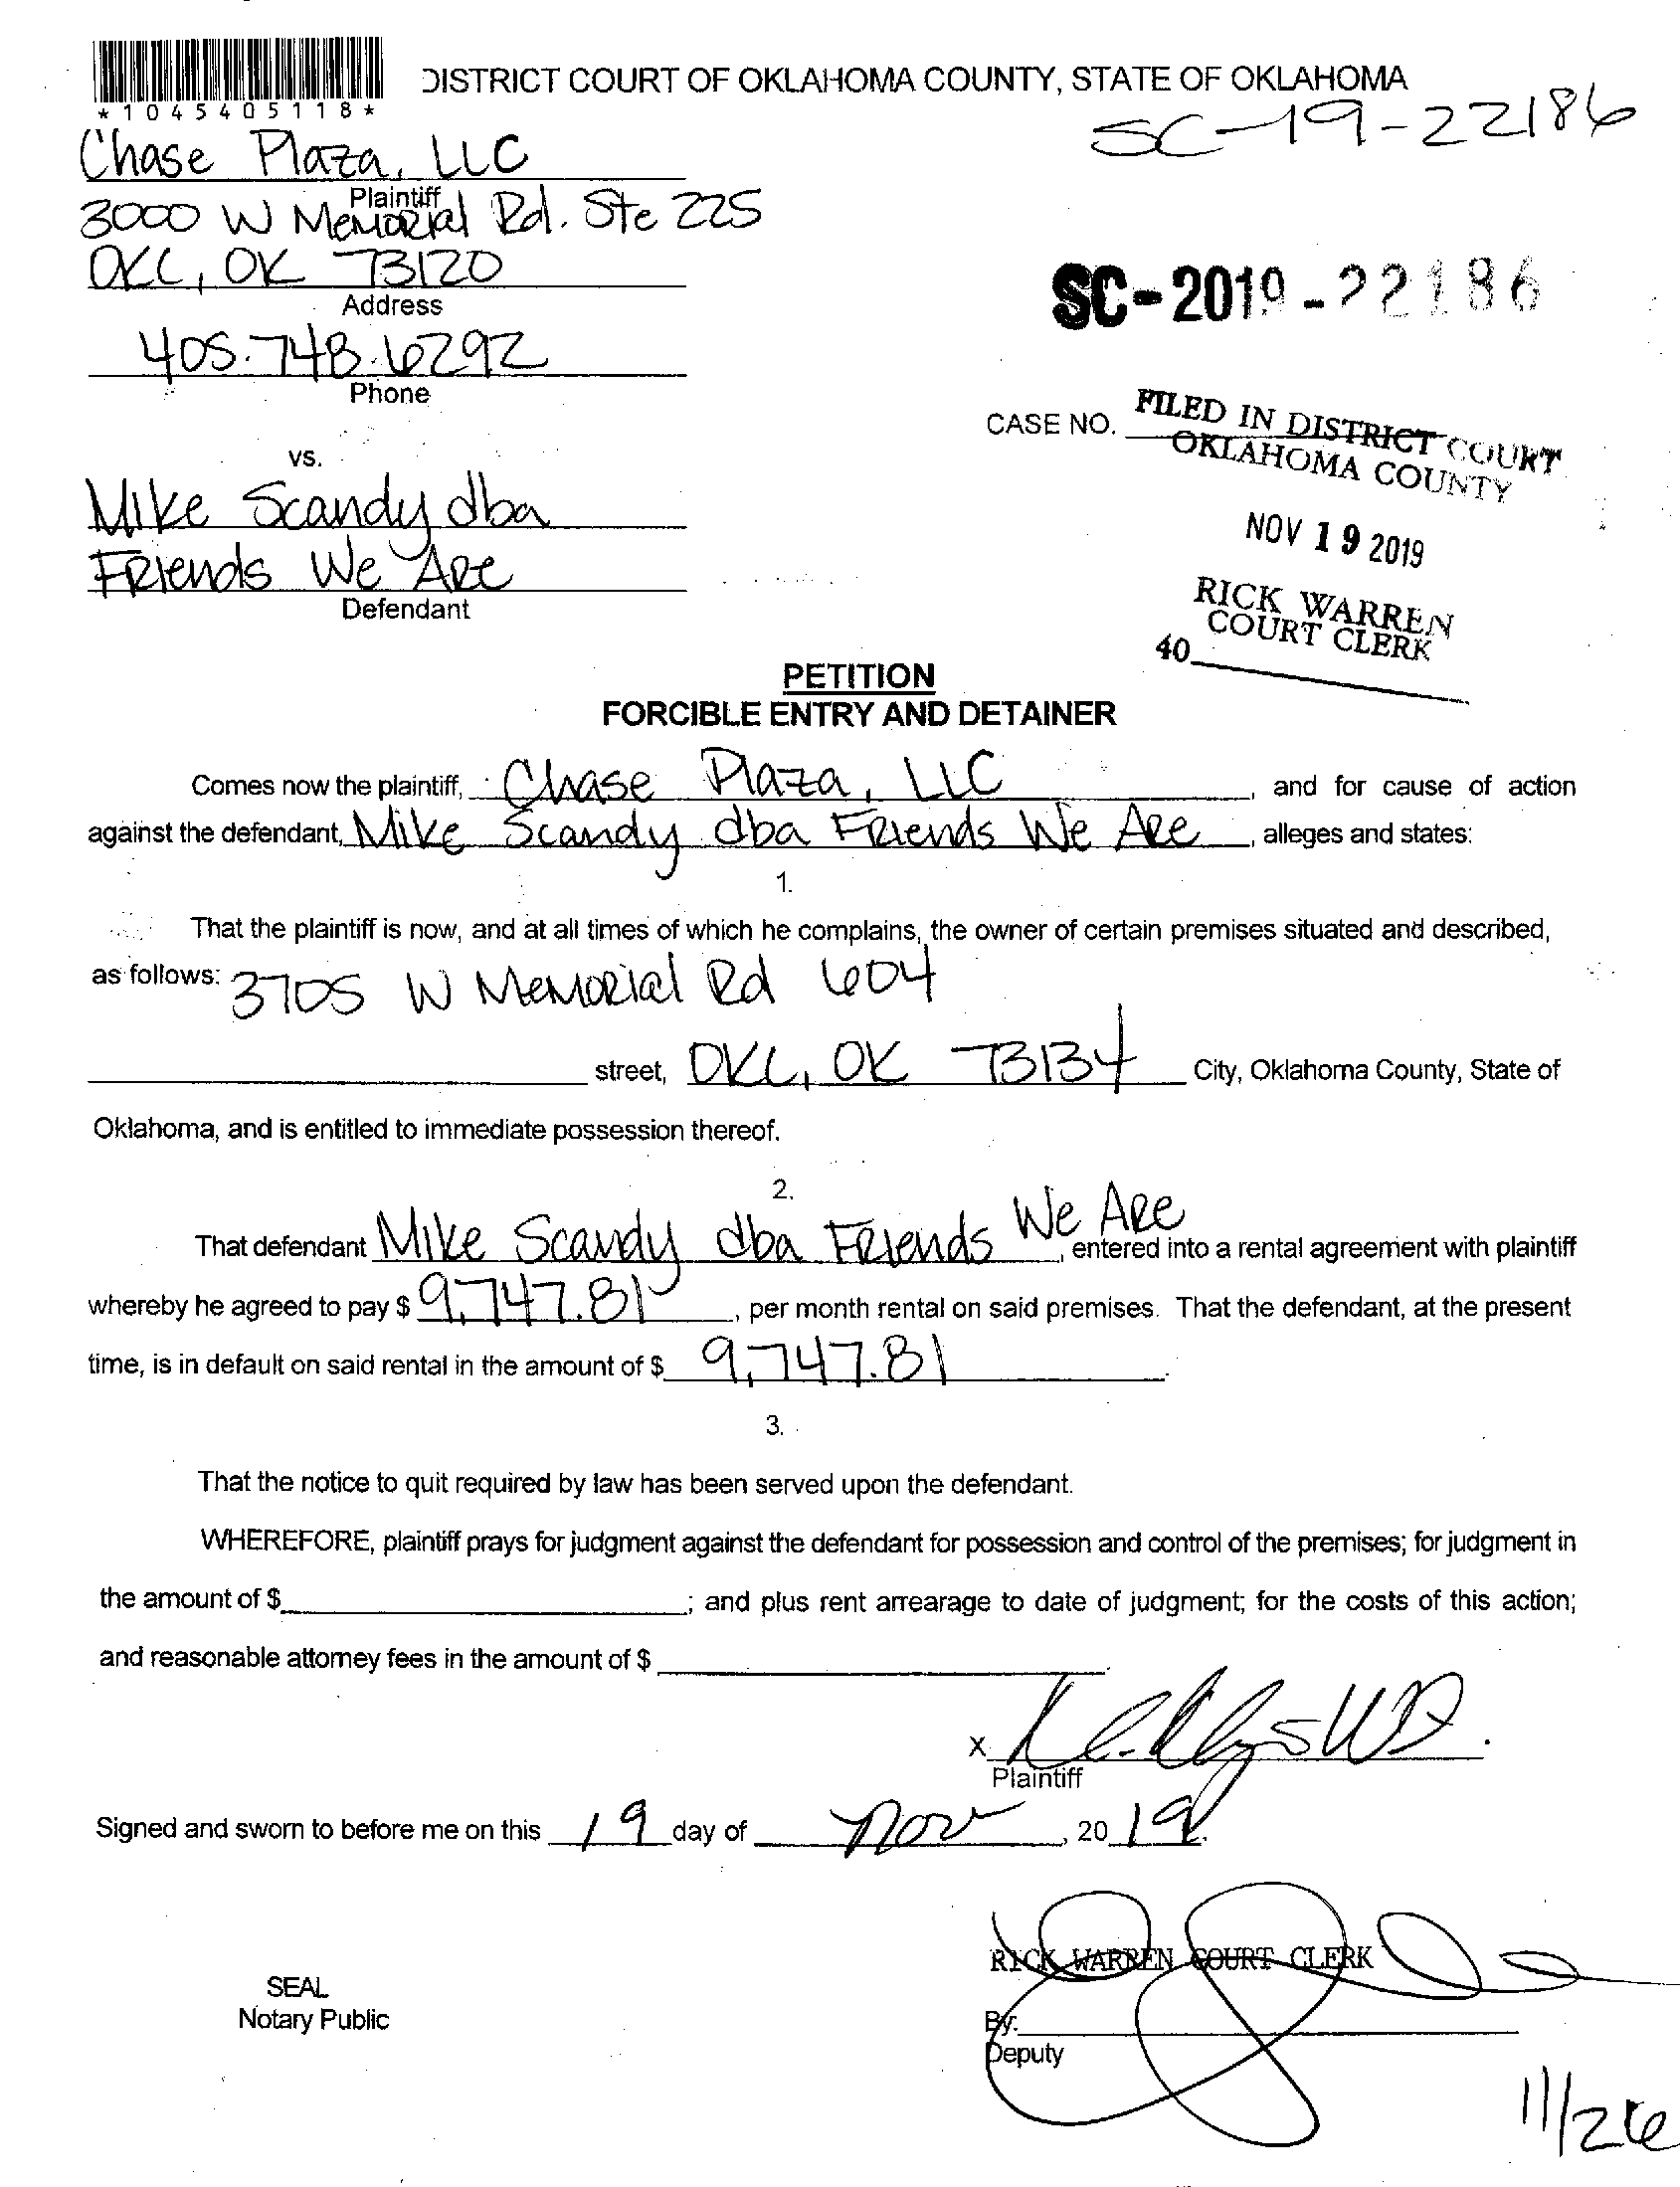 *1045405118*
DISTRICT COURT OF OKLAHOMA COUNTY, STATE OF OKLAHOMA
SC-19-22186
Chase Plaza, LLC
Plaintiff
3000 W Memorial Rd. Ste 225
OKC, OK 73120
Address
SC-2019-22186
405.748.6292
Phone
CASE NO.
FILED IN DISTRICT COURT
OKLAHOMA COUNTY
vs.
Mike Scandy dba
NOV 19 2019
Friends We Are
Defendant
RICK WARREN
COURT CLERK
40
PETITION
FORCIBLE ENTRY AND DETAINER
Comes now the plaintiff, Chase Plaza, LLC, and for cause of action
against the defendant, Mike Scandy dba Friends We Are, alleges and states:
1.
That the plaintiff is now, and at all times of which he complains, the owner of certain premises situated and described,
as follows: 3705 W Memorial Rd 604
street, OKC, OK 73134 City, Oklahoma County, State of
Oklahoma, and is entitled to immediate possession thereof.
2.
That defendant Mike Scandy dba Friends We Are, entered into a rental agreement with plaintiff
whereby he agreed to pay $ 9,747.81, per month rental on said premises. That the defendant, at the present
time, is in default on said rental in the amount of $ 9,747.81.
3.
That the notice to quit required by law has been served upon the defendant.
WHEREFORE, plaintiff prays for judgment against the defendant for possession and control of the premises; for judgment in
the amount of $ ; and plus rent arrearage to date of judgment; for the costs of this action;
and reasonable attorney fees in the amount of $
X
Plaintiff
Signed and sworn to before me on this 19 day of Nov, 2019.
RICK WARREN COURT CLERK
SEAL
Notary Public
By:
Deputy
11/26